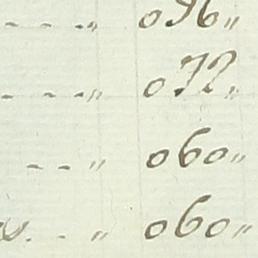 - - - „ 096„
- - - „ 072„
- - „ 060„
- „ 060„